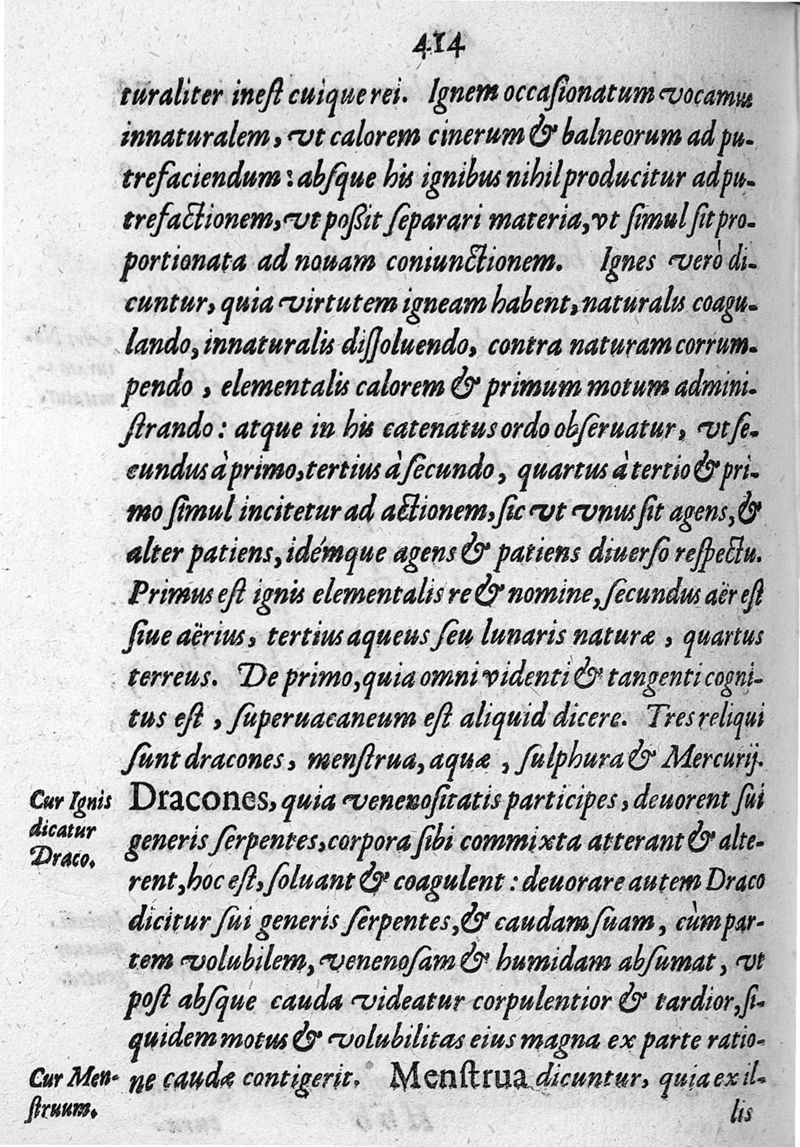 414
turaliter inest cuique rei. Ignem occasionatum vocamus
innaturalem, vt calorem cinerum & balneorum ad pu-
trefaciendum: absque his ignibus nihil producitur ad pu-
trefactionem, vt poßit separari materia, vt simul sit pro-
portionata ad nouam coniunctionem. Ignes verò di-
cuntur, quia virtutem igneam habent, naturalis coagu-
lando, innaturalis dissoluendo, contra naturam corrum-
pendo, elementalis calorem & primum motum admini-
strando: atque in his catenatus ordo obseruatur, vt se-
cundus à primo, tertius à secundo, quartus à tertio & pri-
mo simul incitetur ad actionem, sic vt vnus sit agens, &
alter patiens, idémque agens & patiens diuerso respectu.
Primus est ignis elementalis re & nomine, secundus aër est
siue aërius, tertius aqueus seu lunaris naturæ, quartus
terreus. De primo, quia omni videnti & tangenti cogni-
tus est, superuacaneum est aliquid dicere. Tres reliqui
sunt dracones, menstrua, aquæ, sulphura & Mercurij.
Cur Ignis
dicatur
Draco.
Dracones, quia venenositatis participes, deuorent sui
generis serpentes, corpora sibi commixta atterant & alte-
rent, hoc est, soluant & coagulent: deuorare autem Draco
dicitur sui generis serpentes, & caudam suam, cùm par-
tem volubilem, venenosam & humidam absumat, vt
post absque cauda videatur corpulentior & tardior, si-
quidem motus & volubilitas eius magna ex parte ratio-
Cur Men-
struum.
ne caudæ contigerit. Menstrua dicuntur, quia ex il-
lis